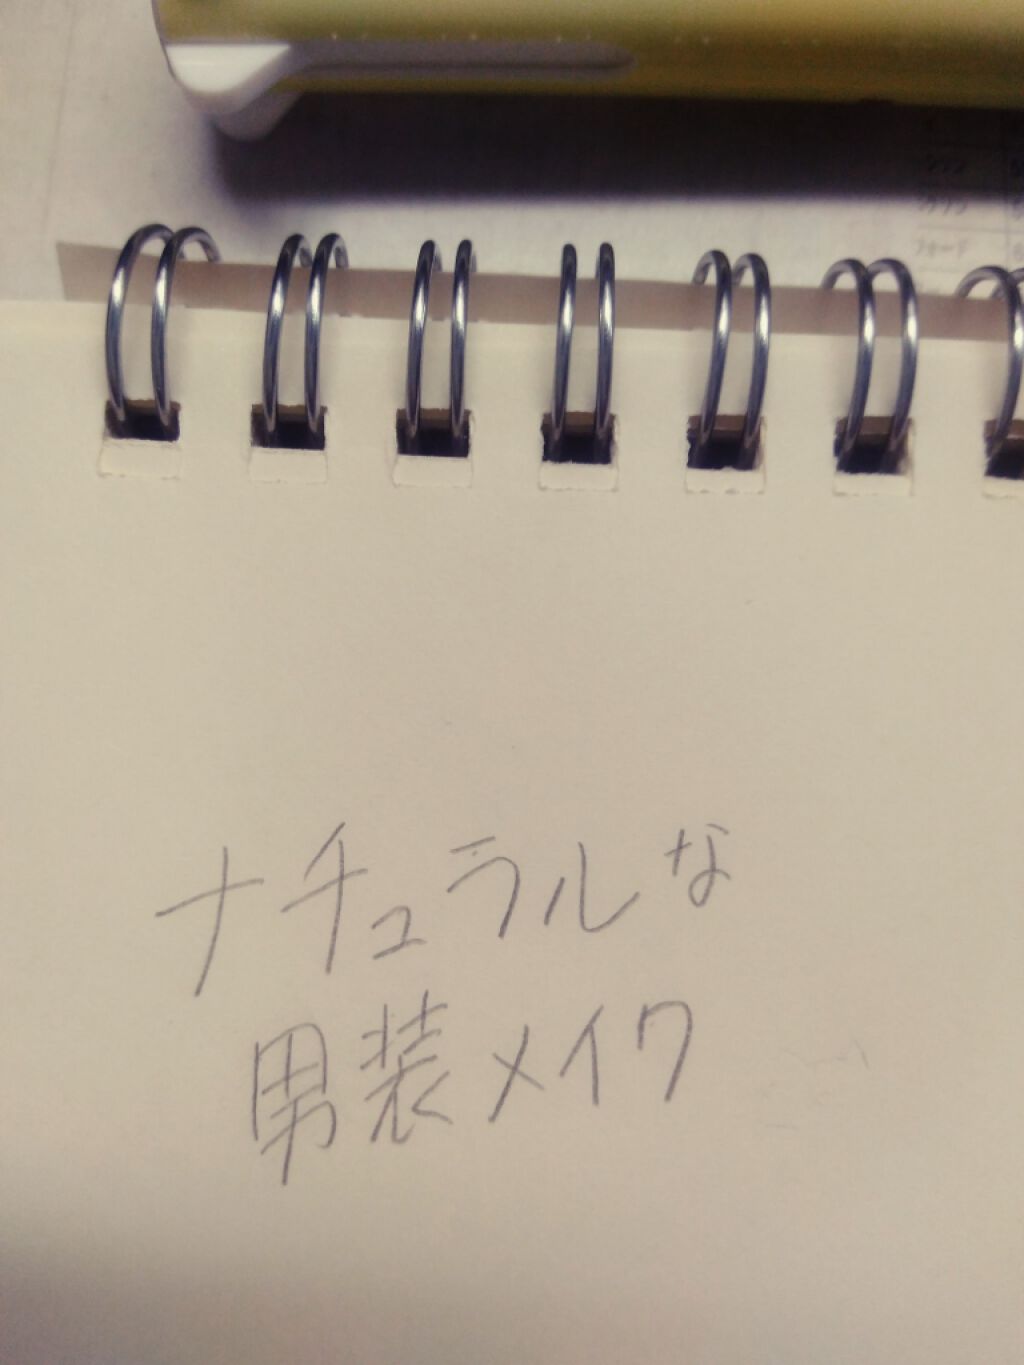 ナチュラルな
男装メイク